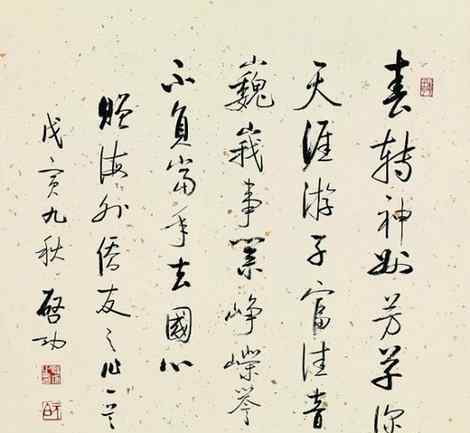 春轉神州芳草深
天涯游子富佳音
巍峩事業崢嶸譽
不負當年去國心
贈海外僑友之作一首
戊寅九秋 啓功